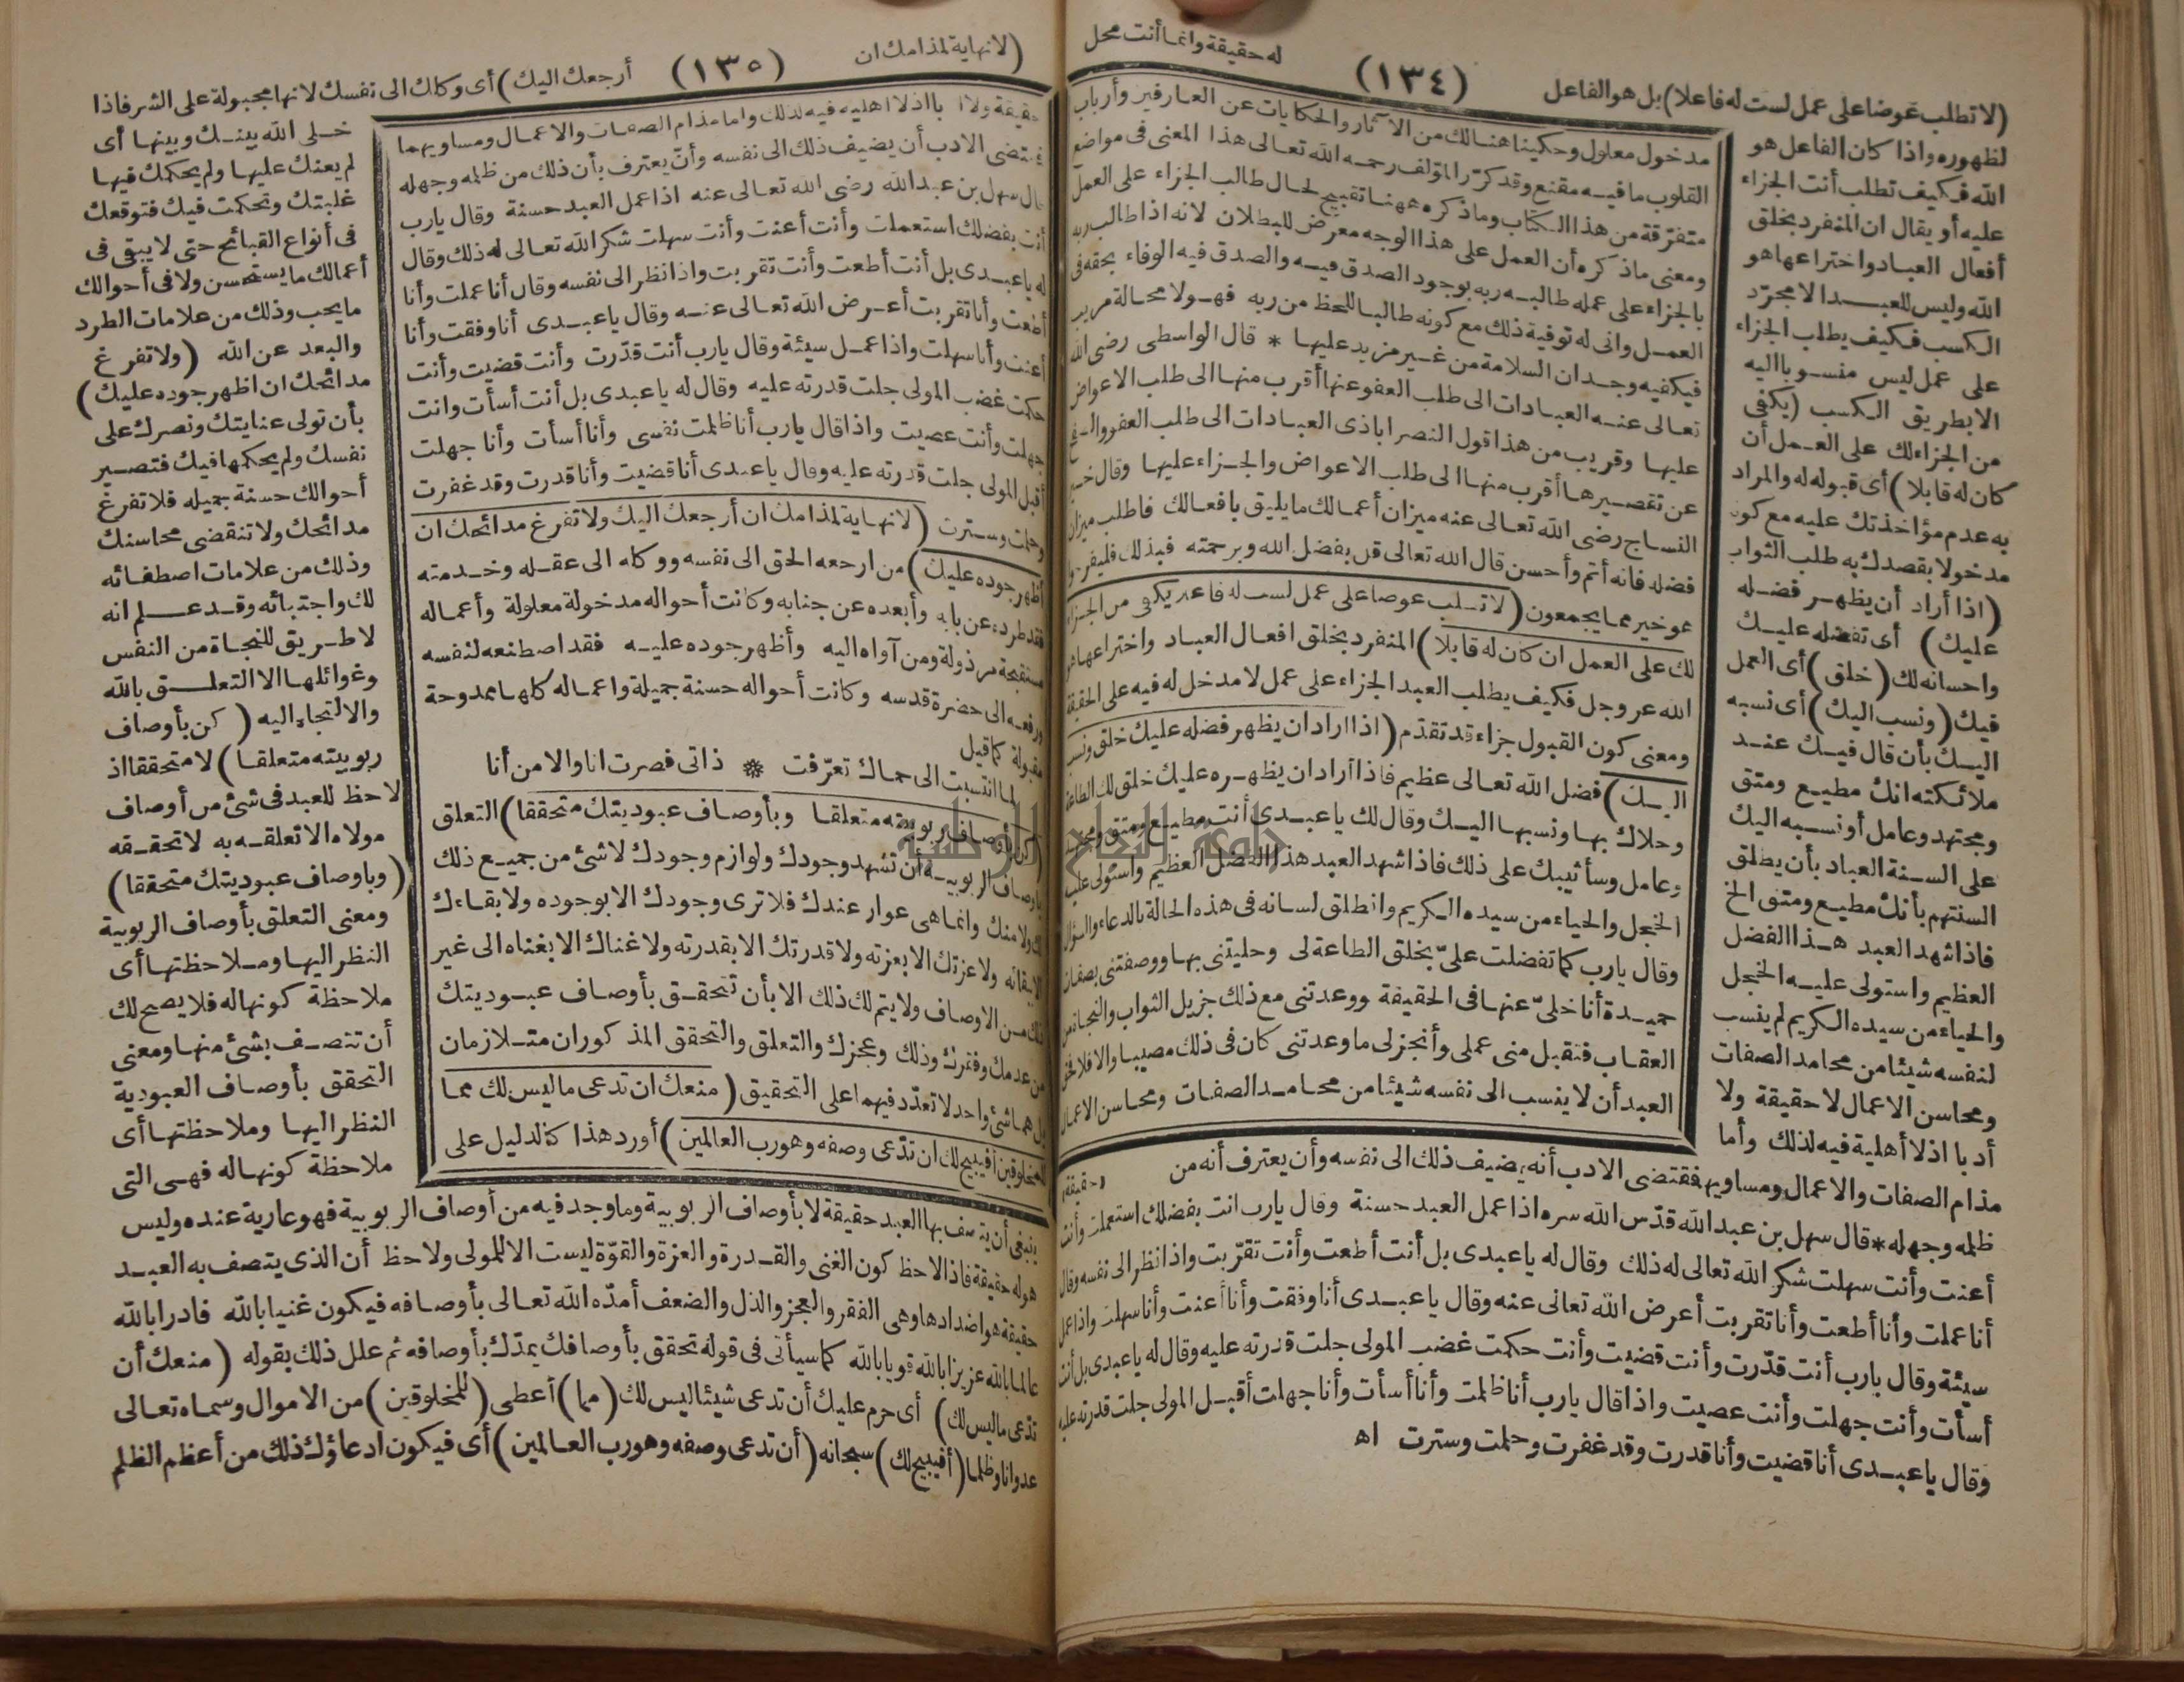 (لا تطلب عوضا على عمل لست له فاعلا) بل هو الفاعل
(١٣٤)
له حقيقة وانما أنت محل
لظهوره واذا كان الفاعل هو
الله فكيف تطلب أنت الجزاء
عليه أو يقال ان المنفرد بخلق
أفعال العباد واختراعها هو
الله وليس للعبد الا مجرّد
الكسب فكيف يطلب الجزاء
على عمل ليس منسوبا اليه
الا بطريق الكسب (يكفى
من الجزاء لك على العمل أن
كان له قابلا) أى قبوله له والمراد
به عدم مؤاخذتك عليه مع كونه
مدخولا بقصدك به طلب الثواب
(اذا أراد أن يظهر فضله
عليك) أى تفضله عليك
واحسانه لك (خلق) أى العمل
فيك (ونسب اليك) أى نسبه
اليك بأن قال فيك عند
ملائكته انك مطيع ومتق
ومجتهد وعامل أو نسبه اليك
على السنة العباد بأن يطلق
السنتهم بأنك مطيع ومتق الخ
فاذا شهد العبد هذا الفضل
العظيم واستولى عليه الخجل
والحياء من سيده الكريم لم ينسب
لنفسه شيئا من محامد الصفات
ومحاسن الاعمال لا حقيقة ولا
أدبا اذ لا أهلية فيه لذلك وأما
مدخول معلول وحكينا هنالك من الآثار والحكايات عن العارفين وأرباب
القلوب ما فيه مقنع وقد كرّر المؤلف رحمه الله تعالى هذا المعنى فى مواضع
متفرّقة من هذا الكتاب وما ذكره ههنا تقبيح لحال طالب الجزاء على العمل
ومعنى ما ذكره أن العمل على هذا الوجه معرض للبطلان لانه اذا طالب ربه
بالجزاء على عمله طالبه ربه بوجود الصدق فيه والصدق فيه الوفاء بحقه فى
العمل وانى له توفية ذلك مع كونه طالبا للحظ من ربه فهو لا محالة مريب
فيكفيه وجدان السلامة من غير مزيد عليها * قال الواسطى رضى الله
تعالى عنه العبادات الى طلب العفو عنها أقرب منها الى طلب الاعواض
عليها وقريب من هذا قول النصراباذى العبادات الى طلب العفو والصفح
عن تقصيرها أقرب منها الى طلب الاعواض والجزاء عليها وقال خير
النساج رضى الله تعالى عنه ميزان أعمالك ما يليق بافعالك فاطلب ميزان
فضله فانه أتم وأحسن قال الله تعالى قل بفضل الله وبرحمته فبذلك فليفرحوا
هو خير مما يجمعون (لا تطلب عوضا على عمل لست له فاعلا يكفى من الجزاء
لك على العمل ان كان له قابلا) المنفرد بخلق افعال العباد واختراعها هو
الله عز وجل فكيف يطلب العبد الجزاء على عمل لا مدخل له فيه على الحقيقة
ومعنى كون القبول جزاء قد تقدّم (اذا اراد ان يظهر فضله عليك خلق ونسب
اليك) فضل الله تعالى عظيم فاذا أراد ان يظهره عليك خلق لك الطاعة
وحلاك بها ونسبها اليك وقال لك يا عبدى أنت مطيع ومتق ومجتهد
وعامل وسأثيبك على ذلك فاذا شهد العبد هذا الفضل العظيم واستولى عليه
الخجل والحياء من سيده الكريم وانطلق لسانه فى هذه الحالة بالدعاء والسؤال
وقال يارب كما تفضلت علىّ بخلق الطاعة لى وحليتنى بها ووصفتنى بصفات
حميدة أنا خلىّ عنها فى الحقيقة ووعدتنى مع ذلك جزيل الثواب والنجاة من
العقاب فتقبل منى عملى وأنجز لى ما وعدتنى كان فى ذلك مصيبا والا فلا حق
العبد أن لا ينسب الى نفسه شيئا من محامد الصفات ومحاسن الاعمال
(حقيقة)
مذام الصفات والاعمال ومساويها فقتضى الادب أنه يضيف ذلك الى نفسه وأن يعترف أنه من
ظلمه وجهله * قال سهل بن عبد الله قدّس الله سره اذا عمل العبد حسنة وقال يارب انت بفضلك استعملت وأنت
أعنت وأنت سهلت شكر الله تعالى له ذلك وقال له يا عبدى بل أنت أطعت وأنت تقرّبت واذا نظر الى نفسه وقال
أنا عملت وأنا أطعت وأنا تقربت أعرض الله تعالى عنه وقال يا عبدى أنا وفقت وأنا أعنت وأنا سهلت واذا عمل
سيئة وقال يارب أنت قدّرت وأنت قضيت وأنت حكمت غضب المولى جلت قدرته عليه وقال له يا عبدى بل أنت
أسأت وأنت جهلت وأنت عصيت واذا قال يارب أنا ظلمت وأنا أسأت وأنا جهلت أقبل المولى جلت قدرته عليه
وقال يا عبدى أنا قضيت وأنا قدرت وقد غفرت وحلمت وسترت اه
(لا نهاية لمذامك ان
(١٣٥)
أرجعك اليك) أى وكلك الى نفسك لانها مجبولة على الشر فاذا
خلى الله بينك وبينها أى
لم يعنك عليها ولم يحكمك فيها
غلبتك وتحكمت فيك فتوقعك
فى أنواع القبائح حتى لا يبقى فى
أعمالك ما يستحسن ولا فى أحوالك
ما يحب وذلك من علامات الطرد
والبعد عن الله (ولا تفرغ
مدائحك ان اظهر جوده عليك)
بأن تولى عنايتك ونصرك على
نفسك ولم يحكمها فيك فتصير
أحوالك حسنة جميله فلا تفرغ
مدائحك ولا تنقضى محاسنك
وذلك من علامات اصطفائه
لك واجتبائه وقد علم انه
لا طريق للنجاة من النفس
وغوائلها الا التعلق بالله
والالتجاء اليه (كن بأوصاف
ربوبيته متعلقا) لا متحققا اذ
لا حظ للعبد فى شئ من أوصاف
مولاه الا تعلقه به لا تحققه
(وباوصاف عبوديتك متحققا)
ومعنى التعلق بأوصاف الربوبية
النظر اليها وملاحظتها أى
ملاحظة كونها له فلا يصح لك
أن تتصف بشئ منها ومعنى
التحقق بأوصاف العبودية
النظر اليها وملاحظتها أى
ملاحظة كونها له فهى التى
حقيقة ولا أدبا اذ لا أهلية فيه لذلك واما مذام الصفات والاعمال ومساويهما
فمقتضى الادب أن يضيف ذلك الى نفسه وأن يعترف بأن ذلك من ظلمه وجهله
قال سهل بن عبد الله رضى الله تعالى عنه اذا عمل العبد حسنة وقال يارب
أنت بفضلك استعملت وأنت أعنت وأنت سهلت شكر الله تعالى له ذلك وقال
له يا عبدى بل أنت أطعت وأنت تقربت واذا نظر الى نفسه وقال أنا عملت وأنا
أطعت وأنا تقربت أعرض الله تعالى عنه وقال يا عبدى أنا وفقت وأنا
أعنت وأنا سهلت واذا عمل سيئة وقال يارب أنت قدّرت وأنت قضيت وأنت
حكمت غضب المولى جلت قدرته عليه وقال له يا عبدى بل أنت أسأت وانت
جهلت وأنت عصيت واذا قال يارب أنا ظلمت نفسى وأنا أسأت وأنا جهلت
أقبل المولى جلت قدرته عليه وقال يا عبدى أنا قضيت وأنا قدرت وقد غفرت
وحلمت وسترت (لا نهاية لمذامك ان أرجعك اليك ولا تفرغ مدائحك ان
أظهر جوده عليك) من ارجعه الحق الى نفسه ووكله الى عقله وخدمته
فقد طرده عن بابه وأبعده عن جنابه وكانت أحواله مدخولة معلولة وأعماله
مستقبحة مرذولة ومن آواه اليه وأظهر جوده عليه فقد اصطنعه لنفسه
ورفعه الى حضرة قدسه وكانت أحواله حسنة جميلة واعماله كلها ممدوحة
مقبولة كما قيل
لما انتسبت الى حماك تعرّفت * ذاتى فصرت انا والا من أنا
(كن بأوصاف ربوبيته متعلقا وبأوصاف عبوديتك متحققا) التعلق
بأوصاف الربوبية أن تشهد وجودك ولوازم وجودك لا شئ من جميع ذلك
لك ولا منك وانما هى عوار عندك فلا ترى وجودك الا بوجوده ولا بقاءك
الا ببقائه ولا عزتك الا بعزته ولا قدرتك الا بقدرته ولا غناك الا بغناه الى غير
ذلك من الاوصاف ولا يتم لك ذلك الا بأن تتحقق بأوصاف عبوديتك
من عدمك وفقرك وذلك وعجزك والتعلق والتحقق المذكوران متلازمان
بل هما شئ واحد لا تعدّد فيهما على التحقيق (منعك ان تدعى ما ليس لك مما
للمخلوقين أفيبيح لك ان تدّعى وصفه وهو رب العالمين) أورد هذا كالدليل على
ينبغى أن يتصف بها العبد حقيقة لا بأوصاف الربوبية وما وجد فيه من أوصاف الربوبية فهو عارية عنده وليس
هو له حقيقة فاذا لاحظ كون الغنى والقدرة والعزة والقوّة ليست الا للمولى ولاحظ أن الذى يتصف به العبد
حقيقة هو اضدادها وهى الفقر والعجز والذل والضعف أمدّه الله تعالى بأوصافه فيكون غنيا بالله قادرا بالله
عالما بالله عزيزا بالله قويا بالله كما سيأتى فى قوله تحقق بأوصافك يمدّك بأوصافه ثم علل ذلك بقوله (منعك أن
تدّعى ما ليس لك) أى حرم عليك أن تدعى شيئا ليس لك (مما) أعطى (للمخلوقين) من الاموال وسماه تعالى
عدوانا وظلما (أفيبيح لك) سبحانه (أن تدعى وصفه وهو رب العالمين) أى فيكون ادعاؤك ذلك من أعظم الظلم
جامعة النجاح الوطنية